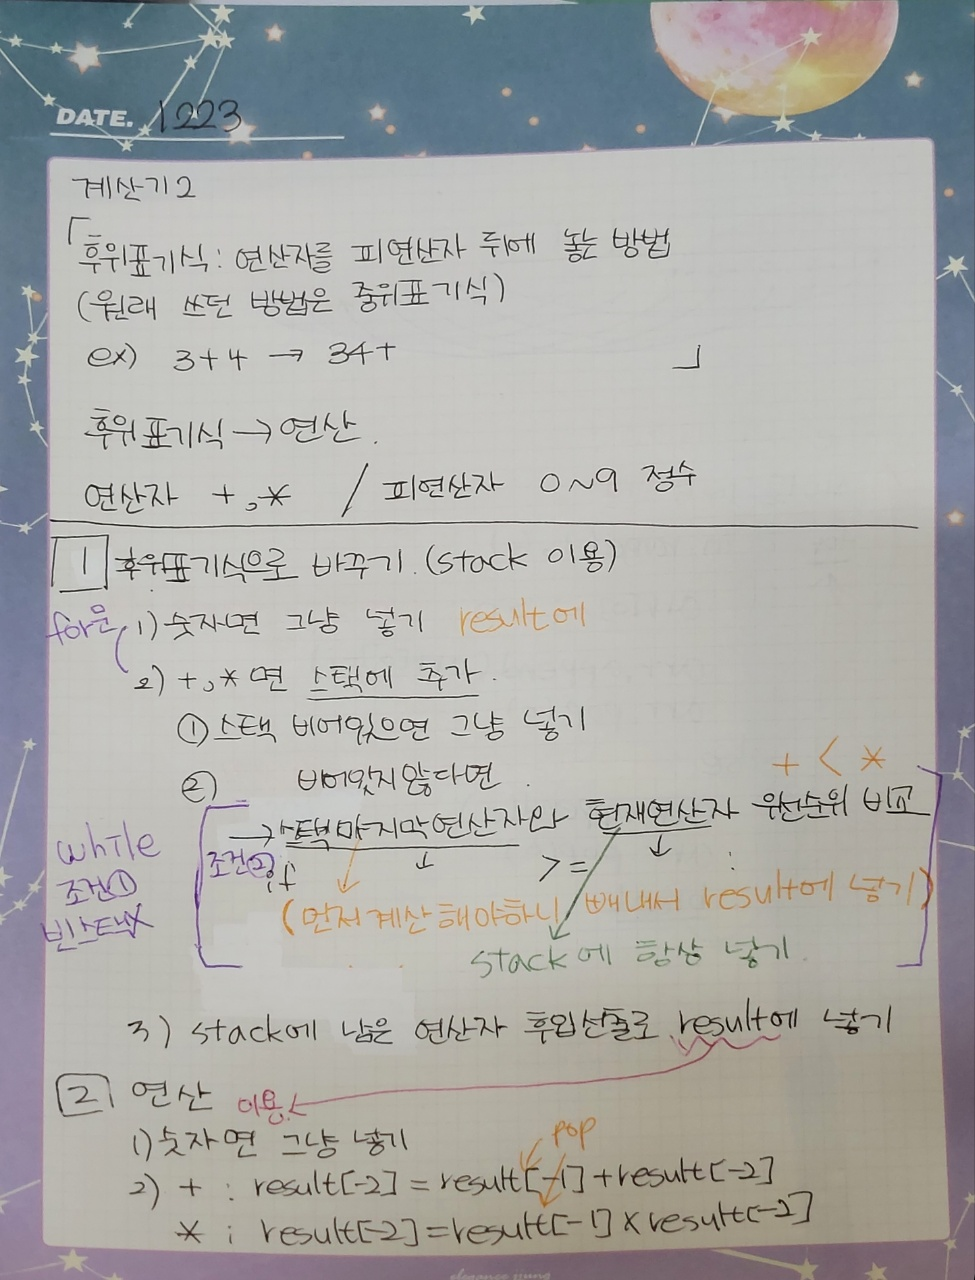 DATE. 1223
계산기2
「후위표기식 : 연산자를 피연산자 뒤에 놓는 방법
(원래 쓰던 방법은 중위표기식)
ex) 3+4 → 34+ 」
후위표기식 → 연산.
연산자 +,* / 피연산자 0~9 정수
1 후위표기식으로 바꾸기. (stack 이용)
for문 1) 숫자면 그냥 넣기 result에
2) +,* 면 스택에 추가.
① 스택 비어있으면 그냥 넣기
② 비어있지않다면.
+ < *
→ 스택마지막연산자와 현재연산자 우선순위 비교
while
조건①
빈스택X
조건②
if ↓ >= ↓ :
(먼저계산해야하니 빼내서 result에 넣기)
stack에 항상 넣기.
3) stack에 남은 연산자 후입선출로 result에 넣기
2 연산 이용
1) 숫자면 그냥 넣기
pop
2) + : result[-2] = result[-1] + result[-2]
* : result[-2] = result[-1] x result[-2]